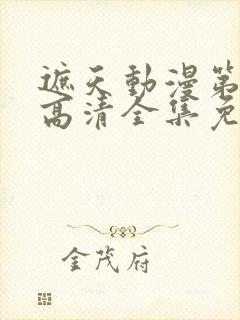 遮天動漫第
高清全集免
金茂府